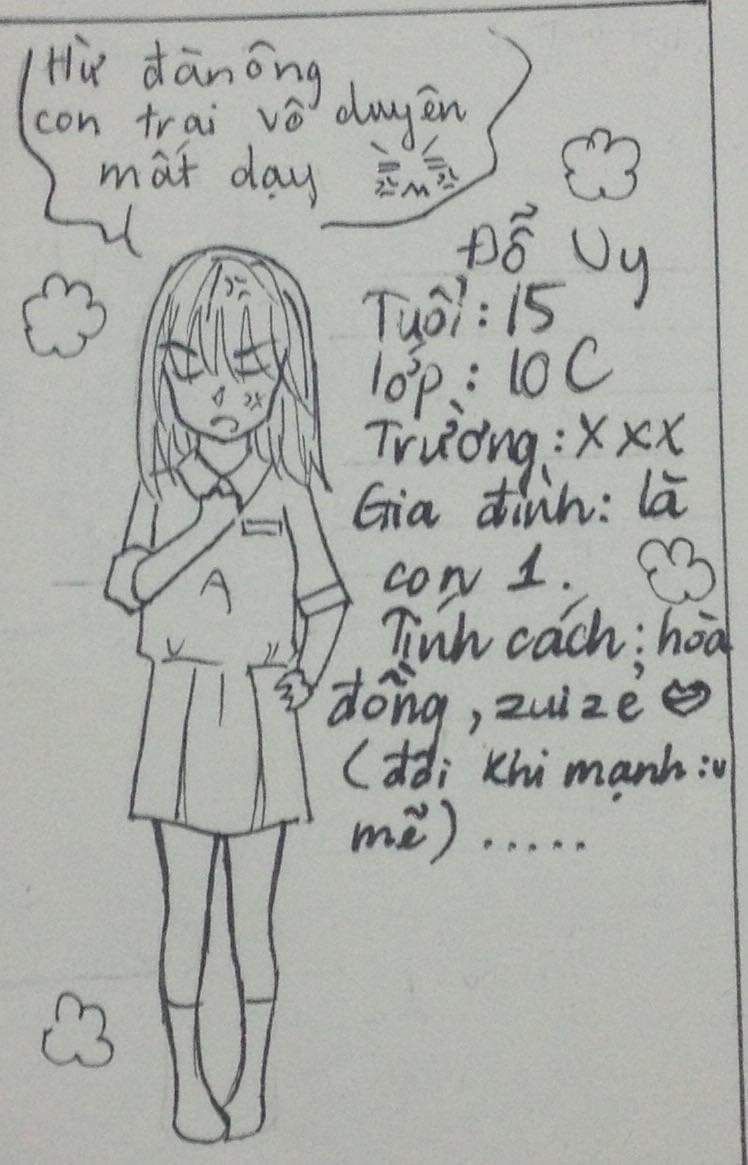 Hừ đàn ông
con trai vô duyên
mất dạy
Đỗ Vy
Tuổi: 15
lớp: 10 C
Trường: X X X
Gia đình: là
con 1.
Tính cách: hòa
đồng, zui zẻ
(đôi khi mạnh :v
mẽ) .....
A